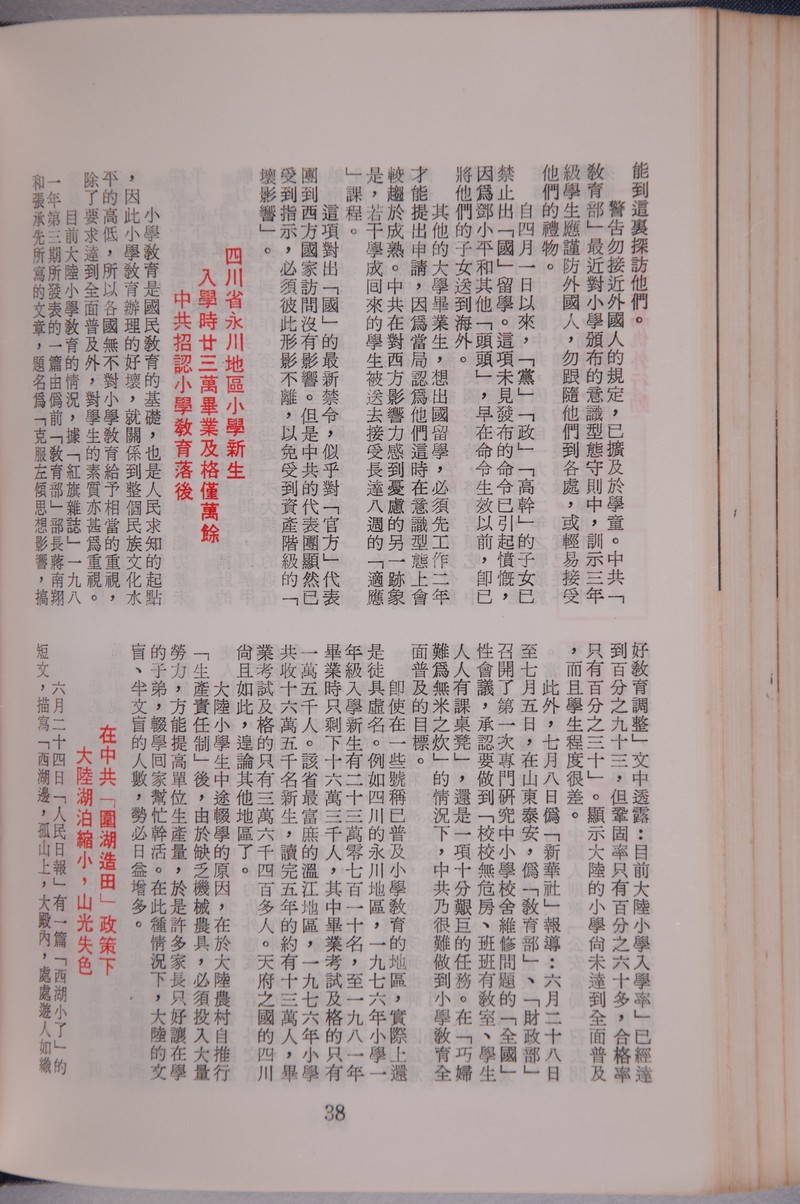 能到這裏探訪他們。
警告勿接近外國人的規定，已擴及於學童。中共「
敎育部」最近對小學頒布的意識型態守則中，訓示三年
級學生應謹防外國人，勿跟隨他們到各處，或輕易接受
他們的禮物。
自四月一日以來，「黨」「政」「高幹」的子女已
禁止出「國」留學。這項未見發布的命令已引起憤慨，
因爲鄧小平和其他「頭頭」，早在命令生效以前，卽已
將他們的子女送到海外。
其他的大學畢業生，想出國留學，必須先工作二年
才能提出申請，因爲當局認爲他們這時在意識型態上會
較趨於成熟。中共在對西方影響力感到憂慮的另一跡象
是，若干學成回來的學生被送去接受長達八週的「適應
」課程。
這項對出「國」的最新禁令，似乎對「官方」代表
團到西方國家訪問沒有影響。但是中共的代表團顯然已
受到指示，必須彼此形影不離，以免受到資產階級的「
壞影響」。
四川省永川地區小學新生
入學時廿三萬畢業及格僅萬餘
中共招認小學敎育落後
小學敎育是國民敎育的基礎，也是人民求知的起點
，因此小學敎育辦理的好壞，就關係到整個民族文化水
平的高低，所以各國無不對小學敎育給予相當的重視，
除了要求達到全面普及外，對學生的素質亦甚爲重視。
目前大陸小學敎育的情況，據「紅旗雜誌」一九八
一年第三期所發表的一篇由僞前「敎育部」部長蔣南翔
和張承先所寫的文章，題名爲「克服左傾思想影響，搞
好敎育調整」文中透露：目前大陸小學入學率」已經達
到百分之九十三，但鞏固率只有百分之六十多，合格率
只有百分之三十」。顯示大陸的小學尙未達到全面普及
，而且學生程度很差。
此外，七月八日僞「新華社」報導：六月二十八日
至七月五日，在山東泰安，僞「敎育部」、「財政部」
召開了第一次專門硏究中小學校舍維修問題的「全國」
性會議，承認要做到「校校無危房、班班有敎室、學生
人人有課桌凳」，還是一項十分艱巨的任務。在「巧婦
難爲無米之炊」的情況下，中共乃很難做到小學敎育全
面普及的目標。
卽使在一些號稱已普及小學敎育的地區，實際上還
是徒具虛名。例如四川的永川地區，一九七六年小學一
年級入學新生有二十三萬零七百一十名，至一九八一年
畢業時只剩下十六萬三千人，其中畢業考試及格的只有
一萬五千人。該省最富庶的溫江地區，一九七六年小學
共收十六萬五千名新生，讀完五年的約有十三萬人，畢
業考試及格的只有三萬六千四百多人。天府之國的四川
尙且如此，遑論其他地區了。
大陸小學生中途輟學的原因，在於大陸農村自推行
「生產責任制」後，由於缺乏機械農具，必須投入大量
勞力，方能提高單位生產量，於是許多家長只好讓在學
的子弟，輟學回家幫忙幹活。在此種情況下，大陸的文
盲、半文盲的人數，勢必日益增多。
在中共「圍湖造田」政策下
大陸湖泊縮小，山光失色
六月二十四日「人民日報」有一篇「西湖小了」的
短文，描寫「西湖邊，孤山上，大殿內，處處遊人如織
38